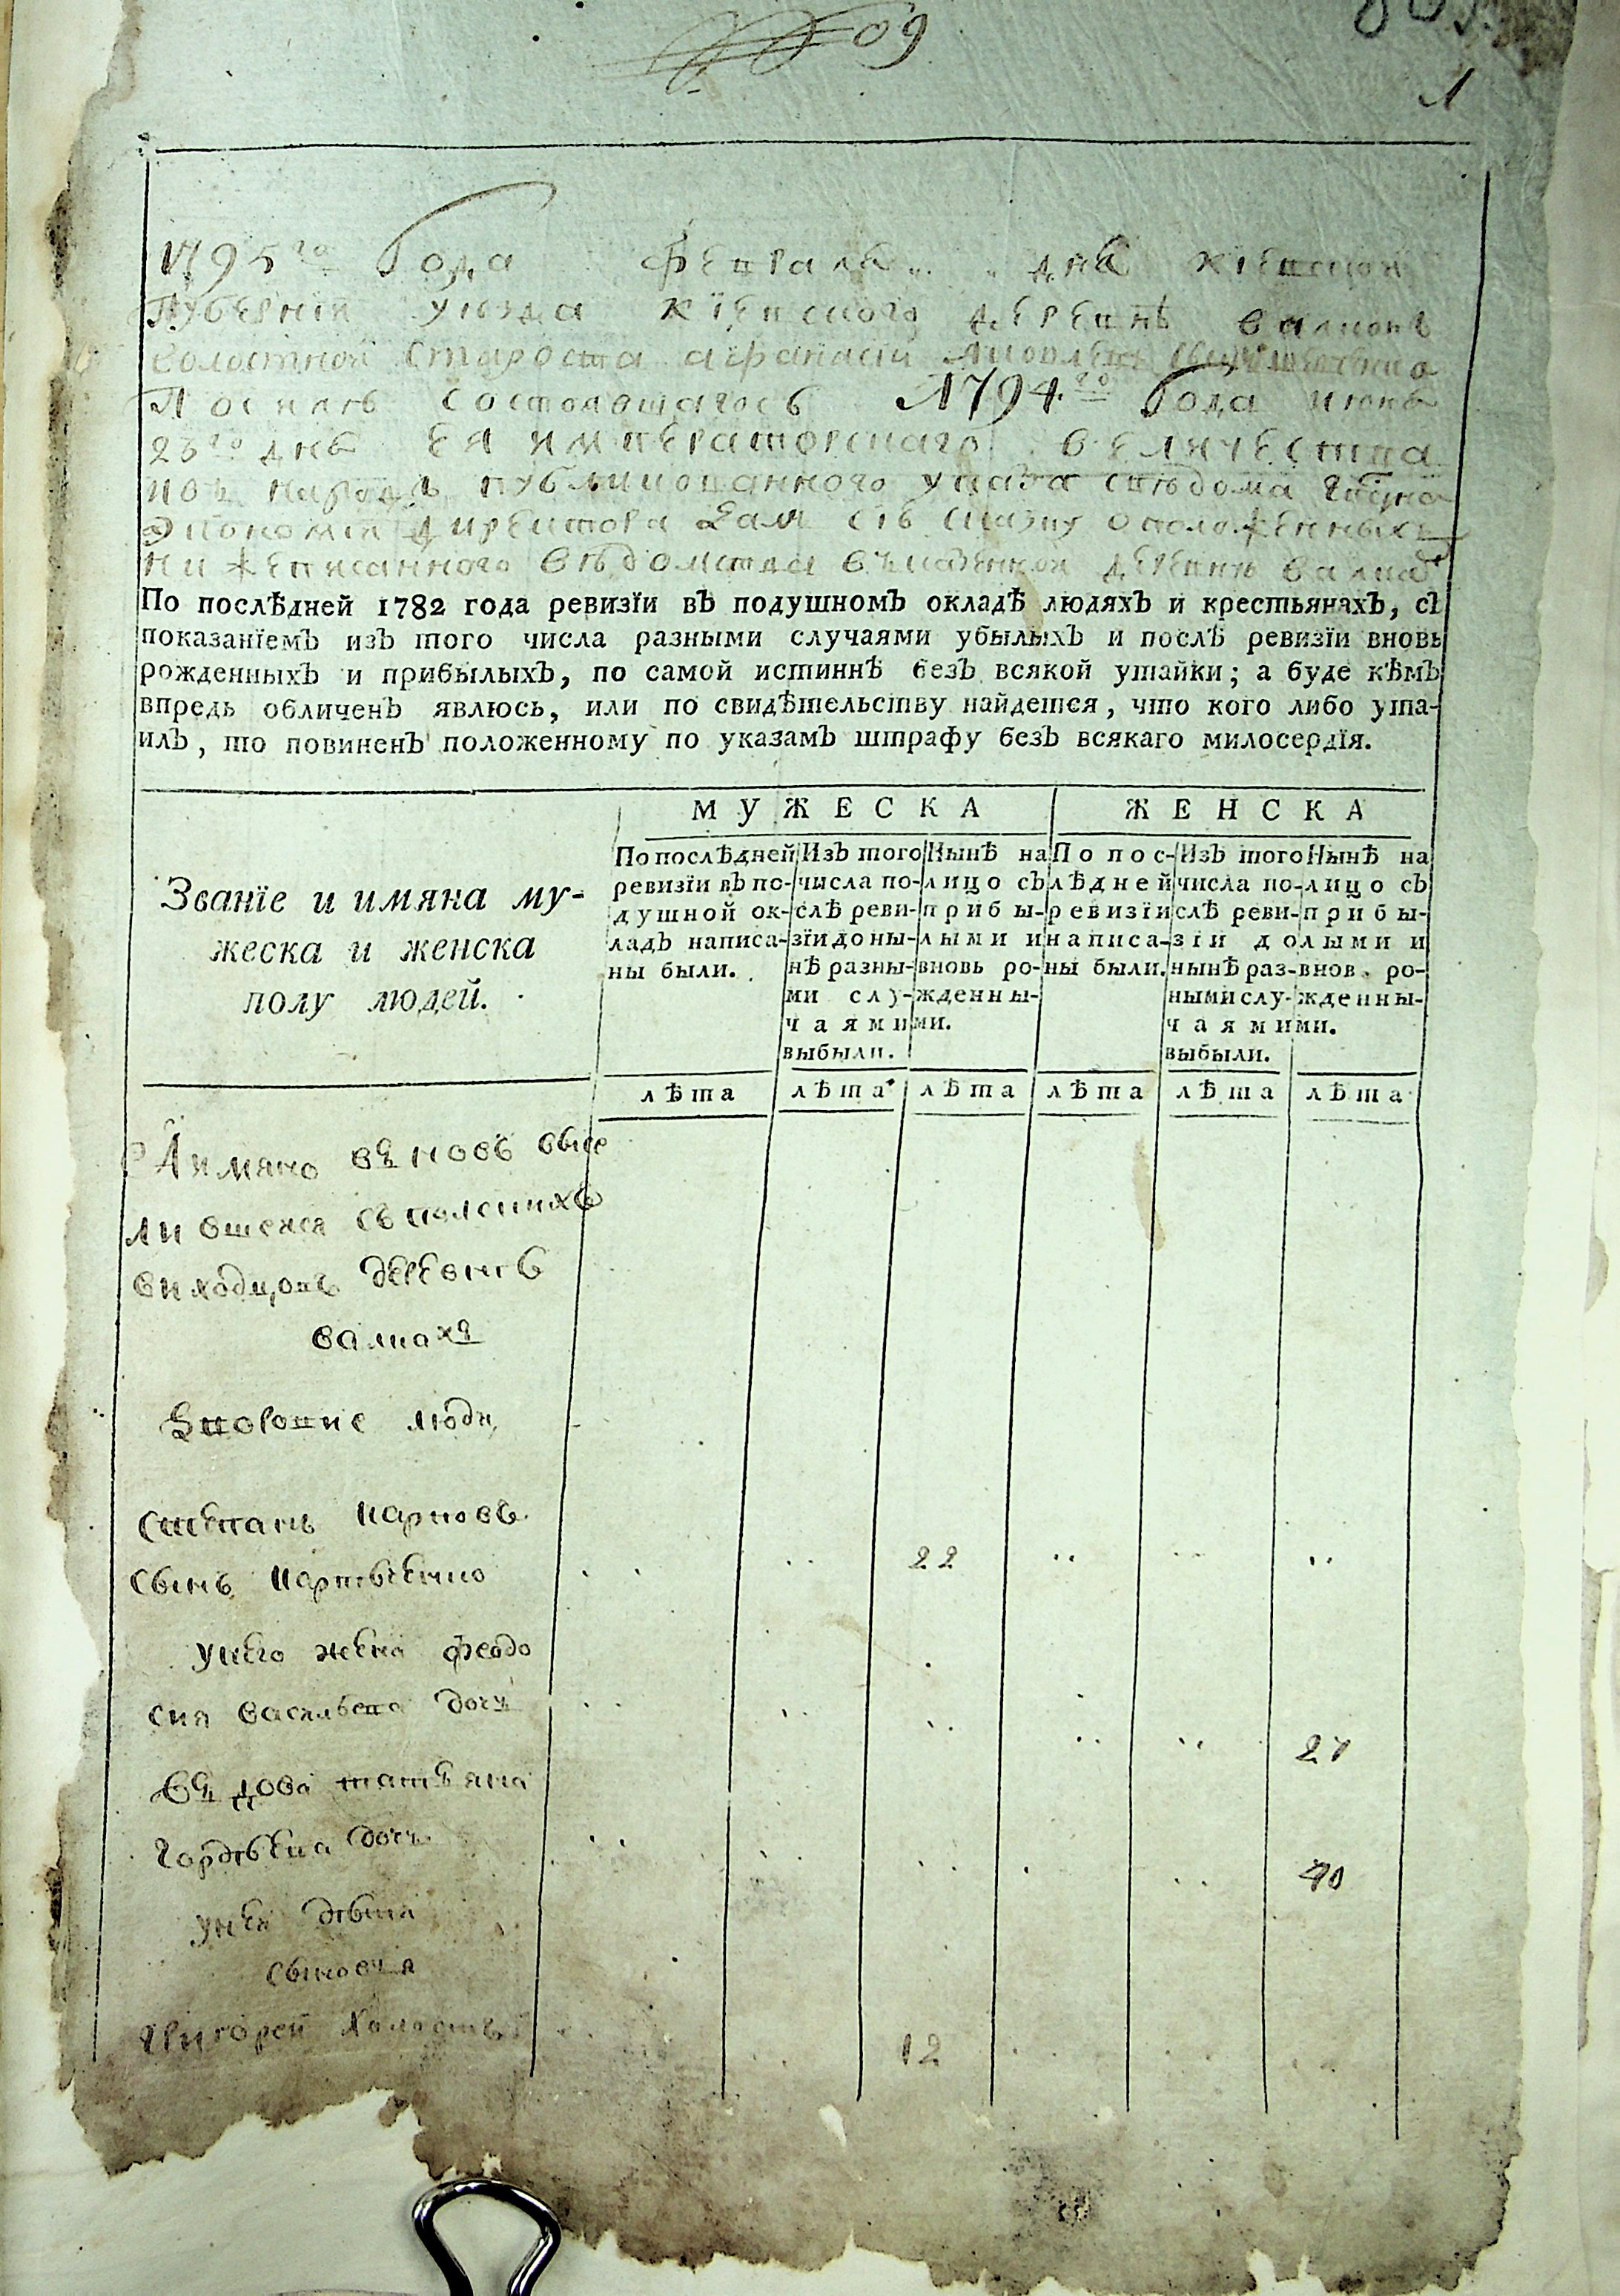 09
1
1795го Года февраля дня Кіевской
Губерніи уезда кіевского деревнѣ
волостной староста афанасій
По силѣ состоявшагось 1794.го Года июня
23го дня ЕЯ императорскаго величества
публикованного указа
Экономіи директора Далъ сію сказку о положенныхъ
нижеписанного вѣдомства
По послѣдней 1782 года ревизїи въ подушномъ окладѣ людяхъ и крестьянахъ, съ
показанїемъ изъ того числа разными случаями убылыхъ и послѣ ревизїи вновь
рожденныхъ и прибылыхъ, по самой истиннѣ безъ всякой утайки; а буде кѣмъ
впредь обличенъ явлюсь, или по свидѣтельству найдется, что кого либо ута-
илъ, то повиненъ положенному по указамъ штрафу безъ всякаго милосердїя.
МУЖЕСКА ЖЕНСКА
Званїе и имяна му-
жеска и женска
полу людей.
По послѣдней
ревизїи въ по-
душной ок-
ладъ написа-
ны были.
Изъ того
числа по-
слѣ реви-
зїи до ны-
нѣ разны-
ми слу-
чаями
выбыли.
Нынѣ на
лицо съ
прибы-
лыми и
вновь ро-
жденны-
ми.
По пос-
лѣдней
ревизїи
написа-
ны были.
Изъ того
числа по-
слѣ реви-
зїи до
нынѣ раз-
ными слу-
чаями
выбыли.
Нынѣ на
лицо съ
прибы-
лыми и
вновь ро-
жденны-
ми.
лѣта лѣта лѣта лѣта лѣта лѣта
А имяно вновь высе
лившехся съ полскихъ
виходцовъ деревнѣ
Дворовие люди
Степанъ Карповъ
сынъ 22
у него жена феодо
сия васильева дочь 27
вдова татьяна
гордѣева дочь 40
у нея дѣти
сыновья
Григорей холостъ 12